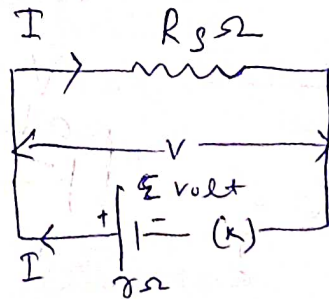 I R_S Ω
V
ℰ volt
+ - (K)
I r Ω